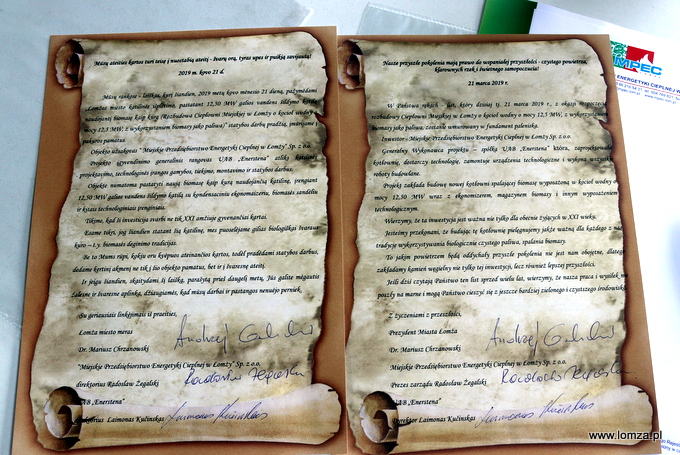 Mūsų ateities kartos turi teisę į nuostabią ateitį - švarų orą, tyras upes ir puikią savijautą!
2019 m. kovo 21 d.
Mūsų rankose - laiškas, kurį šiandien, 2019 metų kovo mėnesio 21 dieną, pažymėdami
„Lomžos miesto katilinės išplėtimo, pastatant 12,50 MW galios vandens šildymo katilą,
naudojantį biomasę kaip kurą (Rozbudowa Ciepłowni Miejskiej w Łomży o kocioł wodny o
mocy 12,5 MW, z wykorzystaniem biomasy jako paliwa)" statybos darbų pradžią, įmūrijame į
pakojos pamatus.
Objekto užsakovas "Miejskie Przedsiębiorstwo Energetyki Cieplnej w Łomży" Sp. z o.o.
Projekto įgyvendinimo generalinis rangovas UAB „Enerstena" atliks katilinės
projektavimo, technologinės įrangos gamybos, tiekimo, montavimo ir statybos darbus.
Objekte numatoma pastatyti naują biomasę kaip kurą naudojančią katilinę, įrengiant
12,50 MW galios vandens šildymo katilą su kondensaciniu ekonomaizeriu, biomasės sandėliu
ir kitais technologiniais įrenginiais.
Tikime, kad ši investicija svarbi ne tik XXI amžiuje gyvenančiai kartai.
Esame tikri, jog šiandien statant šią katilinę, mes puoselėjame gilias biologiškai švaraus
kuro – t.y. biomasės deginimo tradicijas.
Be to Mums rūpi, kokiu oru kvėpuos ateinančios kartos, todėl pradėdami statybos darbus,
dedame kertinį akmenį ne tik į šio objekto pamatus, bet ir į švaresnę ateitį.
Ir jeigu šiandien, skaitydami šį laišką, parašytą prieš daugelį metų, Jūs galite mėgautis
žalesne ir švaresne aplinka, džiaugiamės, kad mūsų darbai ir pastangos nenuėjo perniek.
Su geriausiais linkėjimais iš praeities,
Lomža miesto meras
Dr. Mariusz Chrzanowski
"Miejskie Przedsiębiorstwo Energetyki Cieplnej w Łomży" Sp. z o.o.
direktorius Radosław Żegalski
UAB „Enerstena"
direktorius Laimonas Kučinskas
Nasze przyszłe pokolenia mają prawo do wspaniałej przyszłości - czystego powietrza,
klarownych rzek i świetnego samopoczucia!
21 marca 2019 r.
W Państwa rękach - list, który dzisiaj tj. 21 marca 2019 r., z okazji rozpoczęcia
rozbudowy Ciepłowni Miejskiej w Łomży o kocioł wodny o mocy 12,5 MW, z wykorzystaniem
biomasy jako paliwa, zostanie umurowany w fundament paleniska.
Inwestor: Miejskie Przedsiębiorstwo Energetyki Cieplnej w Łomży Sp. z o.o.
Generalny Wykonawca projektu – spółka UAB „Enerstena" która, zaprojektowała
kotłownię, dostarczy technologię, zamontuje urządzenia technologiczne i wykona wszystkie
roboty budowlane.
Projekt zakłada budowę nowej kotłowni spalającej biomasę wyposażoną w kocioł wodny o
mocy 12,50 MW wraz z ekonomizerem, magazynem biomasy i innym wyposażeniem
technologicznym.
Wierzymy, że ta inwestycja jest ważna nie tylko dla obecnie żyjących w XXI wieku.
Jesteśmy przekonani, że budując tę kotłownię pielęgnujemy jakże ważną dla każdego z nas
tradycję wykorzystywania biologicznie czystego paliwa, spalania biomasy.
To jakim powietrzem będą oddychały przyszłe pokolenia nie jest nam obojętne, dlatego
zakładamy kamień węgielny nie tylko tej inwestycji, lecz również lepszej przyszłości.
Jeśli dziś czytają Państwo ten list sprzed wielu lat, wierzymy, że nasza praca i wysiłek nie
poszły na marne i mogą Państwo cieszyć się z jeszcze bardziej zielonego i czystszego środowiska.
Z życzeniami z przeszłości,
Prezydent Miasta Łomża
Dr. Mariusz Chrzanowski
Miejskie Przedsiębiorstwo Energetyki Cieplnej w Łomży Sp. z o.o.
Prezes zarządu Radosław Żegalski
UAB „Enerstena"
Dyrektor Laimonas Kučinskas
MPEC
ENERGETYKI CIEPLNEJ
www.lomza.pl